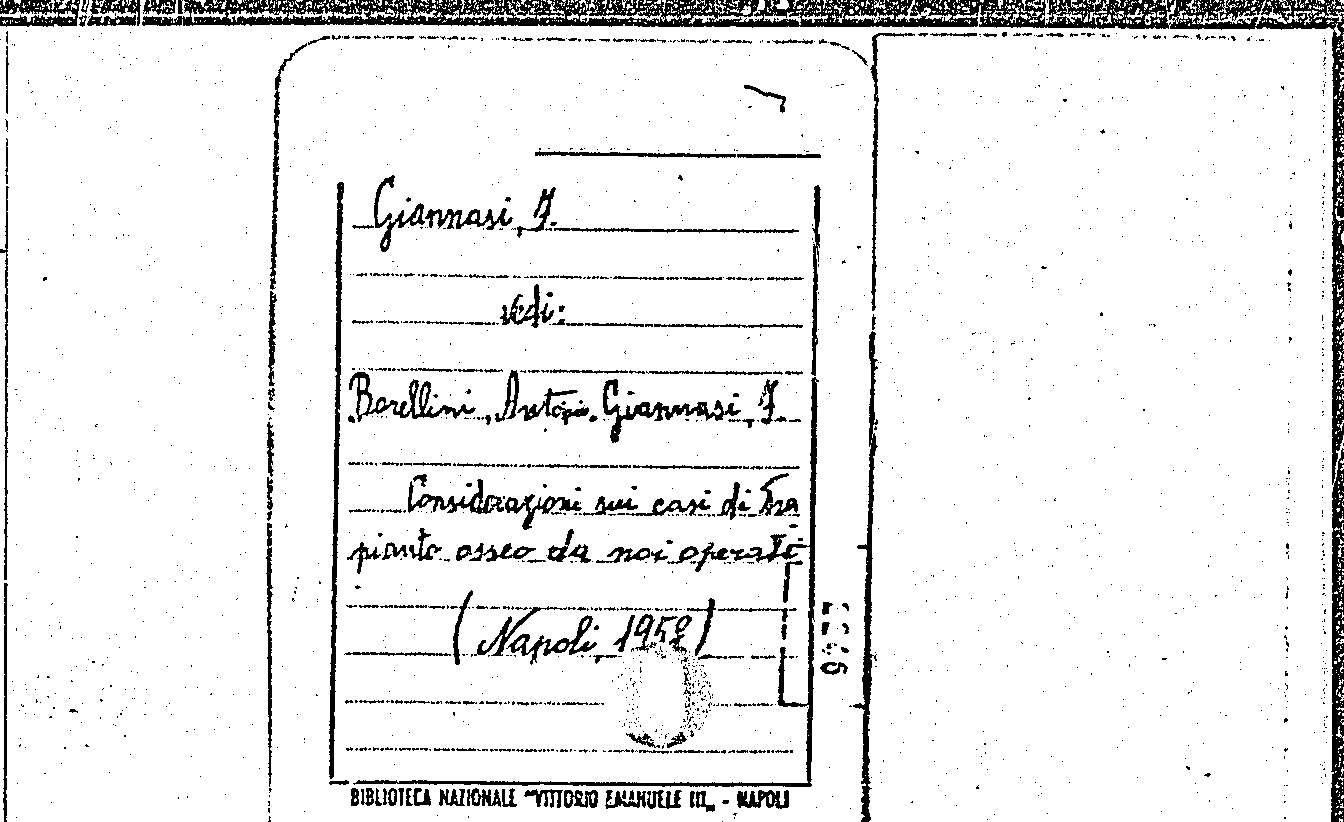 Giannasi, F.
vedi:
Borellini, Antonio. Giannasi, F.
Considerazioni sui casi di tra
pianto osseo da noi operati
(Napoli, 1952)
BIBLIOTECA NAZIONALE "VITTORIO EMANUELE III„ - NAPOLI